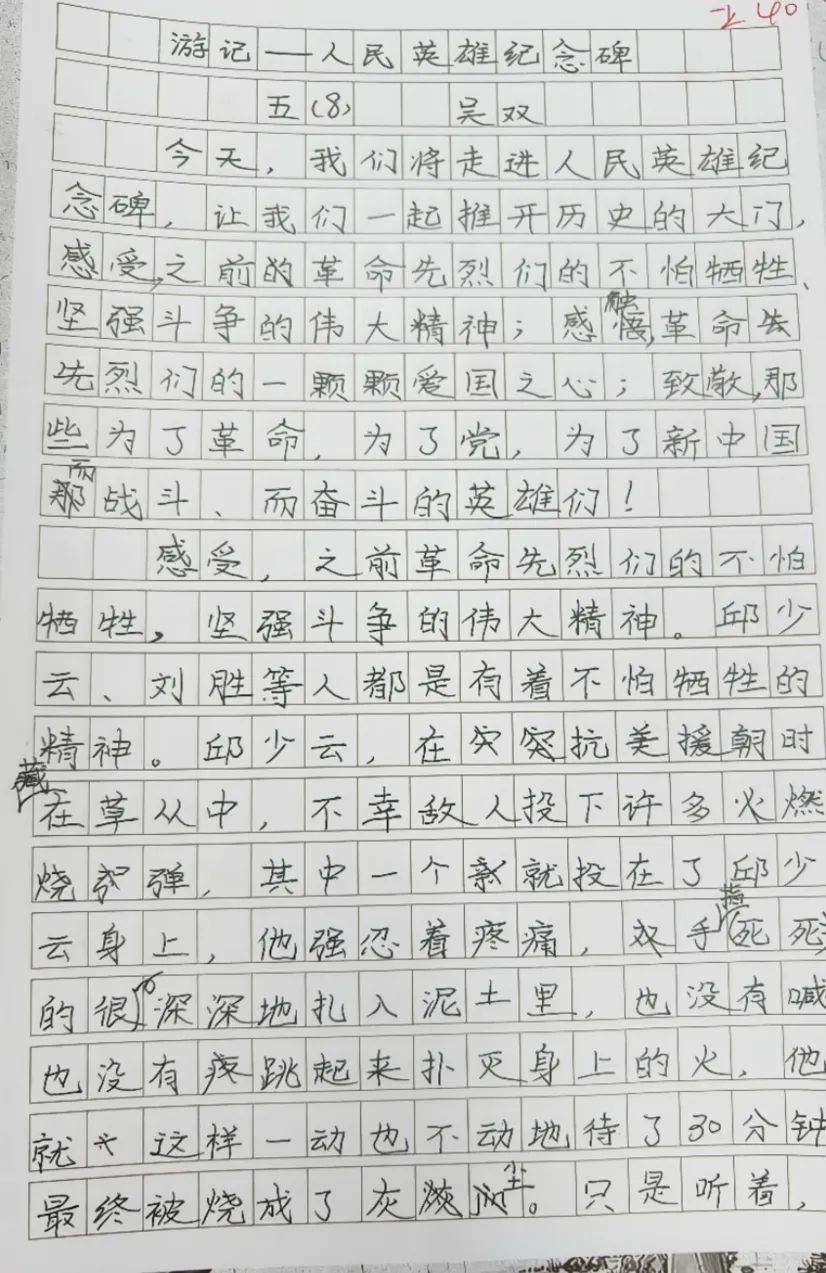 40
游记——人民英雄纪念碑
五(8) 吴双
今天，我们将走进人民英雄纪
念碑，让我们一起推开历史的大门，
感受，之前的革命先烈们的不怕牺牲、
坚强斗争的伟大精神；感触，革命
先烈们的一颗颗爱国之心；致敬，那
些为了革命，为了党，为了新中国
而战斗、而奋斗的英雄们！
感受，之前革命先烈们的不怕
牺牲，坚强斗争的伟大精神。邱少
云、刘胜等人都是有着不怕牺牲的
精神。邱少云，在抗美援朝时
藏在草从中，不幸敌人投下许多火燃
烧弹，其中一个就投在了邱少
云身上，他强忍着疼痛，双手死死
的深深地扎入泥土里，也没有喊
也没有疼跳起来扑灭身上的火，他
就这样一动也不动地待了30分钟
最终被烧成了灰尘。只是听着，